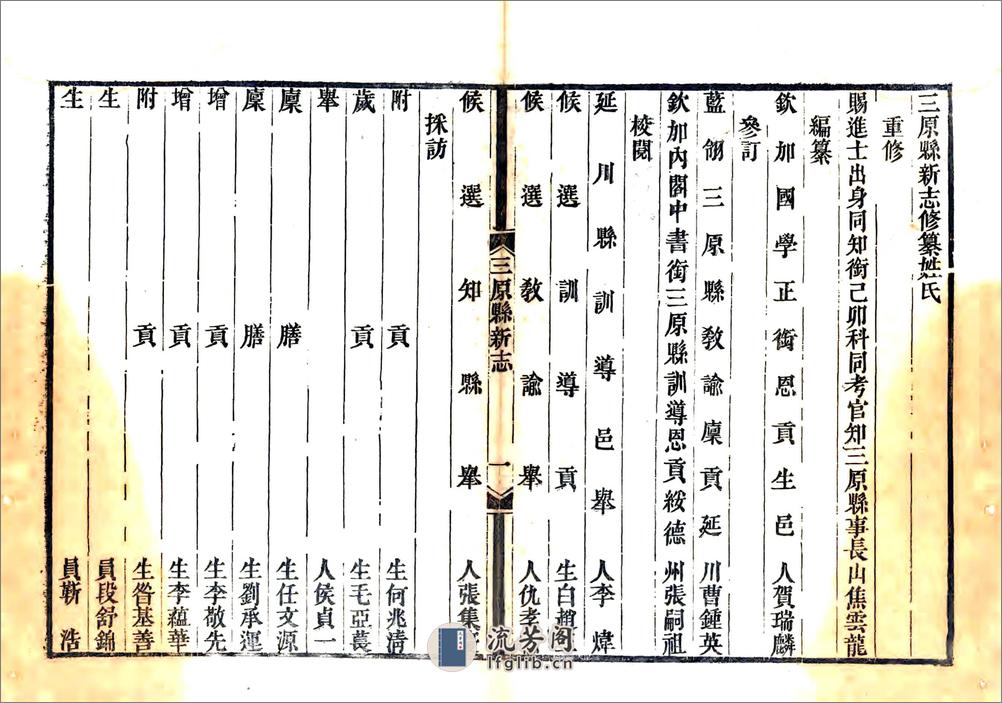 三原縣新志修纂姓氏
重修
賜進士出身同知銜己卯科同考官知三原縣事長山焦雲龍
編纂
欽加國學正銜恩貢生邑人賀瑞麟
參訂
藍翎三原縣敎諭廩貢延川曹鍾英
欽加內閣中書銜三原縣訓導恩貢綏德州張嗣祖
校閱
延川縣訓導邑舉人李煒
候選訓導貢生白趙
候選敎諭舉人仇孝
三原縣新志
一
候選知縣舉人張集
採訪
附貢生何兆淸
歲貢生毛亞萇
舉人侯貞一
廩膳生任文源
廩膳生劉承運
增貢生李敬先
增貢生李蘊華
附貢生昝基善
生員段舒錦
生員靳浩
流芳阁
lfglib.cn